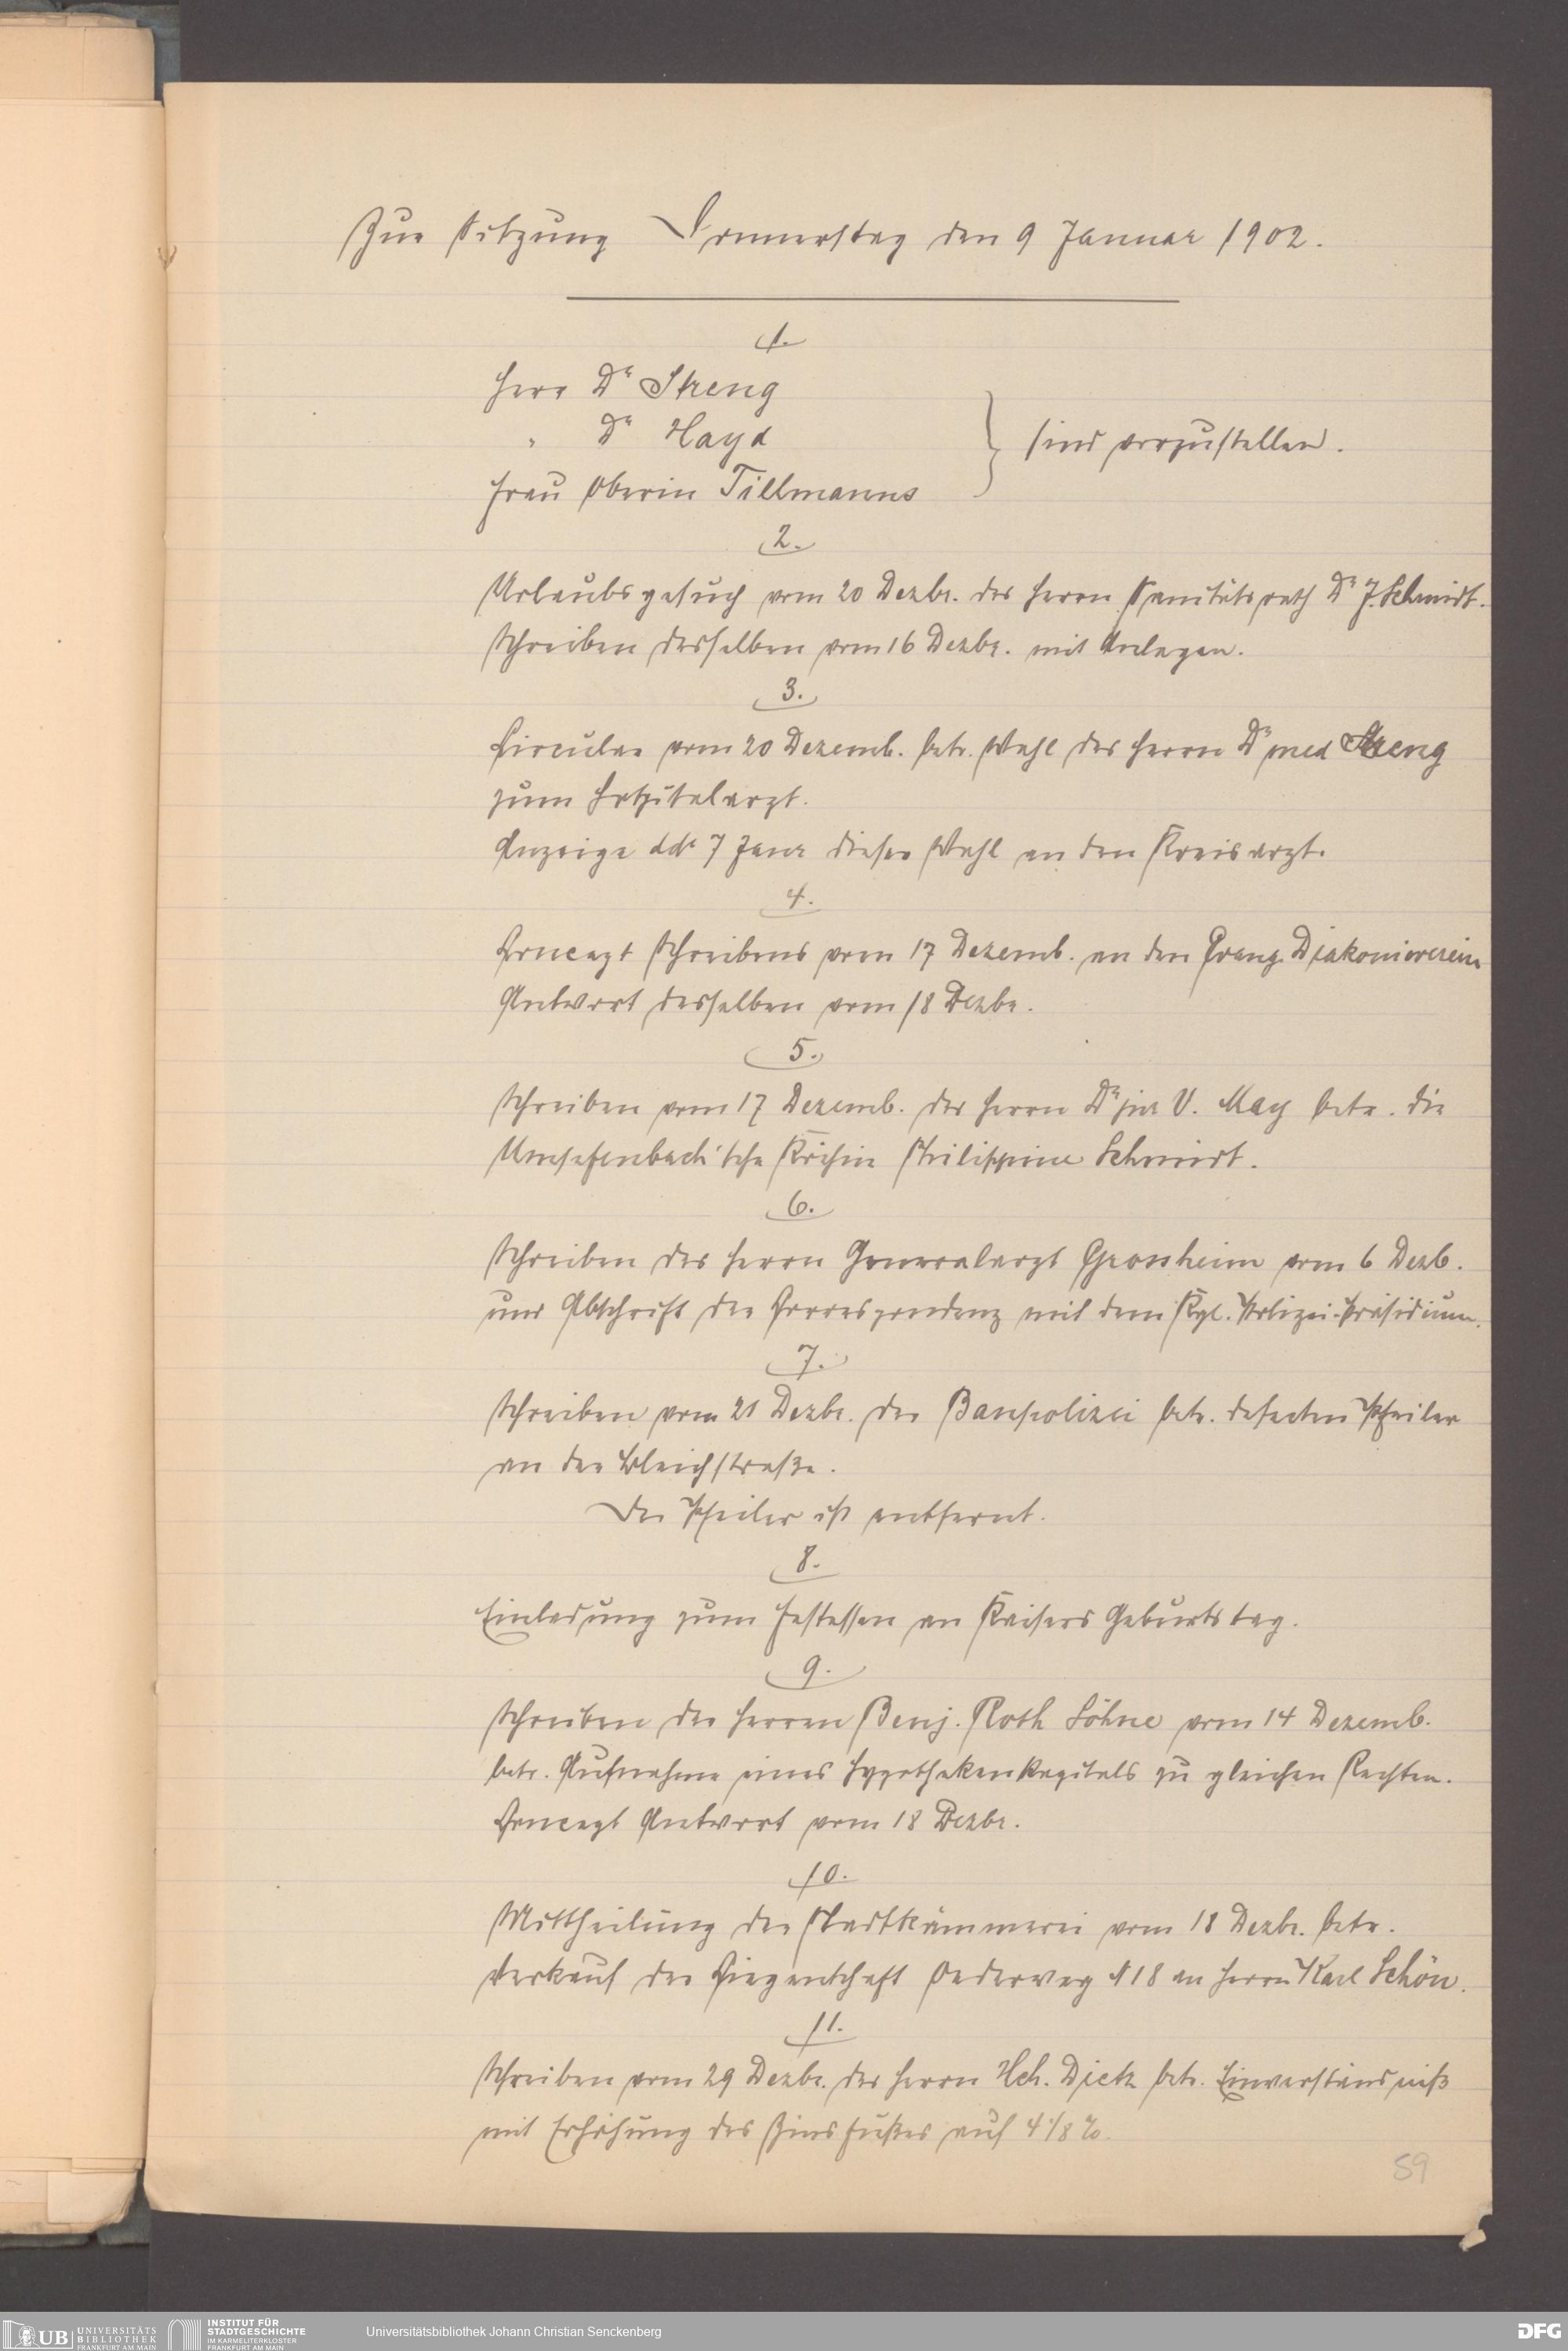 Zur Sitzung Donnerstag den 9 Januar 1902.
1.
Herr Dr Streng
„ Dr Hayd
Frau Oberin Tillmanns
} sind vorzustellen.
2.
Urlaubsgesuch vom 20 Dezbr. des Herrn Sanitätsrath Dr J. Schmidt.
Schreiben desselben vom 16 Dezbr. mit Anlagen.
3.
Circular vom 20 Dezemb. betr. Wahl des Herrn Dr med Streng
zum Hospitalarzt.
Anzeige ddt 7 Janr dieser Wahl an den Kreisarzt.
4.
Concept Schreibens vom 17 Dezemb. an den Evang. Diakonieverein
Antwort desselben vom 18 Dezbr.
5.
Schreiben vom 17 Dezemb. des Herrn Dr jur V. May betr. die
Umpfenbach'sche Köchin Philippine Schmidt.
6.
Schreiben des Herrn Generalarzt Grossheim vom 6 Dezb.
und Abschrift der Correspondenz mit dem Kgl. Polizei-Präsidium.
7.
Schreiben vom 21 Dezbr. der Baupolizei betr. defecten Pfeiler
an der Bleichstraße.
Der Pfeiler ist entfernt.
8.
Einladung zum Festessen an Kaisers Geburtstag.
9.
Schreiben der Herren Benj. Roth Söhne vom 14 Dezemb.
betr. Aufnahme eines Hypothekenkapitals zu gleichen Rechten.
Concept Antwort vom 18 Dezbr.
10.
Mittheilung der Stadtkämmerei vom 18 Dezbr. betr.
Verkauf der Liegenschaft Oederweg № 18 an Herrn Karl Schön.
11.
Schreiben vom 29 Dezbr. des Herrn Hch. Dietz betr. Einverständniß
mit Erhöhung des Zinsfußes auf 4 1/8 %.
59
UB UNIVERSITÄTS
BIBLIOTHEK
FRANKFURT AM MAIN
INSTITUT FÜR
STADTGESCHICHTE
IM KARMELITERKLOSTER
FRANKFURT AM MAIN
Universitätsbibliothek Johann Christian Senckenberg
DFG